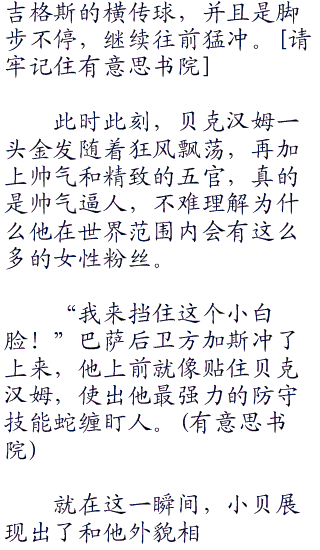 吉格斯的横传球，并且是脚
步不停，继续往前猛冲。[请
牢记住有意思书院]
此时此刻，贝克汉姆一
头金发随着狂风飘荡，再加
上帅气和精致的五官，真的
是帅气逼人，不难理解为什
么他在世界范围内会有这么
多的女性粉丝。
“我来挡住这个小白
脸！”巴萨后卫方加斯冲了
上来，他上前就像贴住贝克
汉姆，使出他最强力的防守
技能蛇缠盯人。(有意思书
院)
就在这一瞬间，小贝展
现出了和他外貌相